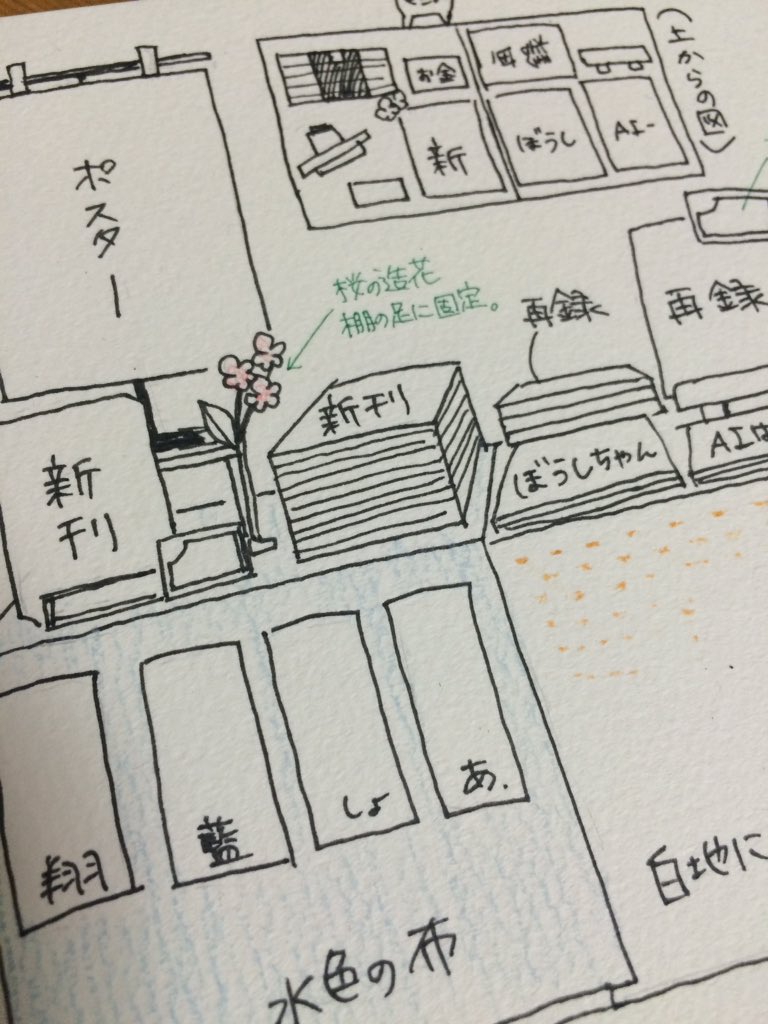 (上からの図)
お金
再録
新
ぼうし
AI-
ポスター
桜の造花
棚の足に固定。
再録
再録
新刊
新刊
ぼうしちゃん
AIは
翔
藍
しょ
あ.
水色の布
白地に